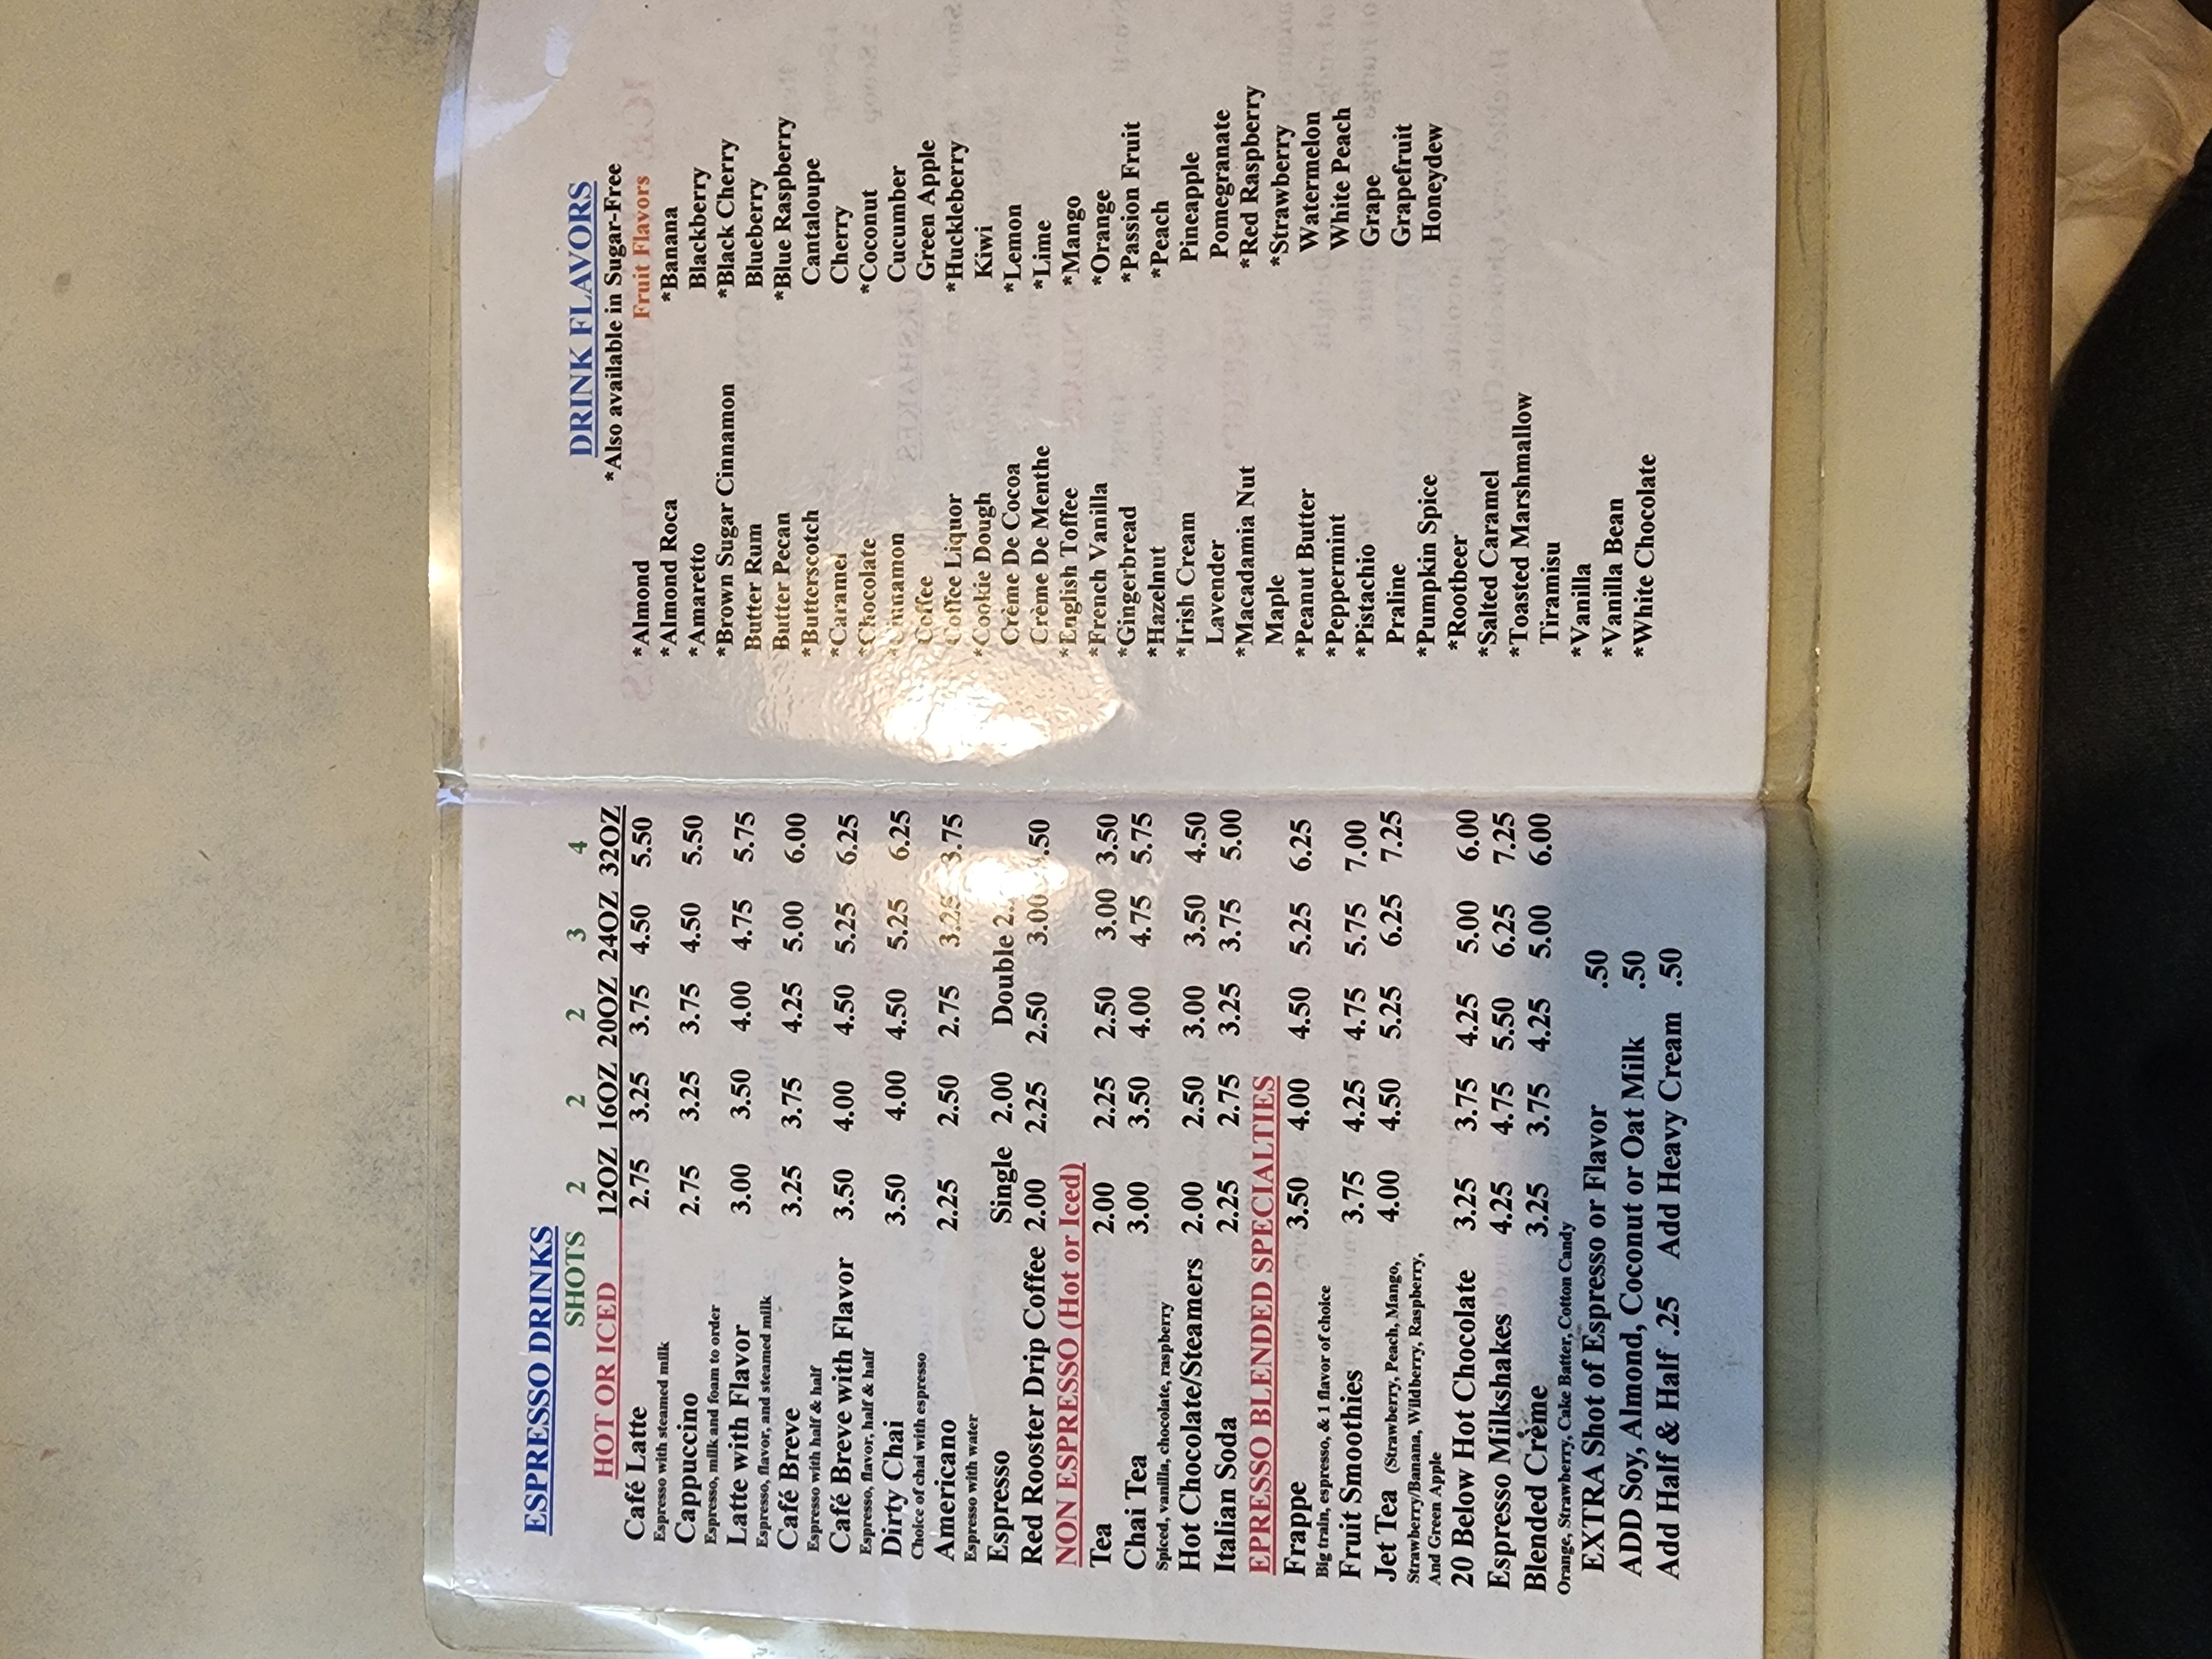 ESPRESSO DRINKS
SHOTS 2 2 2 3 4
HOT OR ICED 12OZ 16OZ 20OZ 24OZ 32OZ
Café Latte 2.75 3.25 3.75 4.50 5.50
Espresso with steamed milk
Cappuccino 2.75 3.25 3.75 4.50 5.50
Espresso, milk and foam to order
Latte with Flavor 3.00 3.50 4.00 4.75 5.75
Espresso, flavor, and steamed milk
Café Breve 3.25 3.75 4.25 5.00 6.00
Espresso with half & half
Café Breve with Flavor 3.50 4.00 4.50 5.25 6.25
Espresso, flavor, half & half
Dirty Chai 3.50 4.00 4.50 5.25 6.25
Choice of chai with espresso
Americano 2.25 2.50 2.75 3.25 3.75
Espresso with water
Espresso Single 2.00 Double
Red Rooster Drip Coffee 2.00 2.25 2.50 3.00
NON ESPRESSO (Hot or Iced)
Tea 2.00 2.25 2.50 3.00 3.50
Chai Tea 3.00 3.50 4.00 4.75 5.75
Spiced, vanilla, chocolate, raspberry
Hot Chocolate/Steamers 2.00 2.50 3.00 3.50 4.50
Italian Soda 2.25 2.75 3.25 3.75 5.00
EPRESSO BLENDED SPECIALTIES
Frappe 3.50 4.00 4.50 5.25 6.25
Big train, espresso, & 1 flavor of choice
Fruit Smoothies 3.75 4.25 4.75 5.75 7.00
Jet Tea (Strawberry, Peach, Mango, 4.00 4.50 5.25 6.25 7.25
Strawberry/Banana, Wildberry, Raspberry,
And Green Apple
20 Below Hot Chocolate 3.25 3.75 4.25 5.00 6.00
Espresso Milkshakes 4.25 4.75 5.50 6.25 7.25
Blended Crème 3.25 3.75 4.25 5.00 6.00
Orange, Strawberry, Cake Batter, Cotton Candy
EXTRA Shot of Espresso or Flavor .50
ADD Soy, Almond, Coconut or Oat Milk .50
Add Half & Half .25 Add Heavy Cream .50
DRINK FLAVORS
*Also available in Sugar-Free
*Almond
*Almond Roca
*Amaretto
*Brown Sugar Cinnamon
Butter Rum
Butter Pecan
*Butterscotch
*Caramel
*Chocolate
*Cinnamon
Coffee
Coffee Liquor
*Cookie Dough
Crème De Cocoa
Crème De Menthe
*English Toffee
*French Vanilla
*Gingerbread
*Hazelnut
*Irish Cream
Lavender
*Macadamia Nut
Maple
*Peanut Butter
*Peppermint
*Pistachio
Praline
*Pumpkin Spice
*Rootbeer
*Salted Caramel
*Toasted Marshmallow
Tiramisu
*Vanilla
*Vanilla Bean
*White Chocolate
Fruit Flavors
*Banana
Blackberry
*Black Cherry
Blueberry
*Blue Raspberry
Cantaloupe
Cherry
*Coconut
Cucumber
Green Apple
*Huckleberry
Kiwi
*Lemon
*Lime
*Mango
*Orange
*Passion Fruit
*Peach
Pineapple
Pomegranate
*Red Raspberry
*Strawberry
Watermelon
White Peach
Grape
Grapefruit
Honeydew